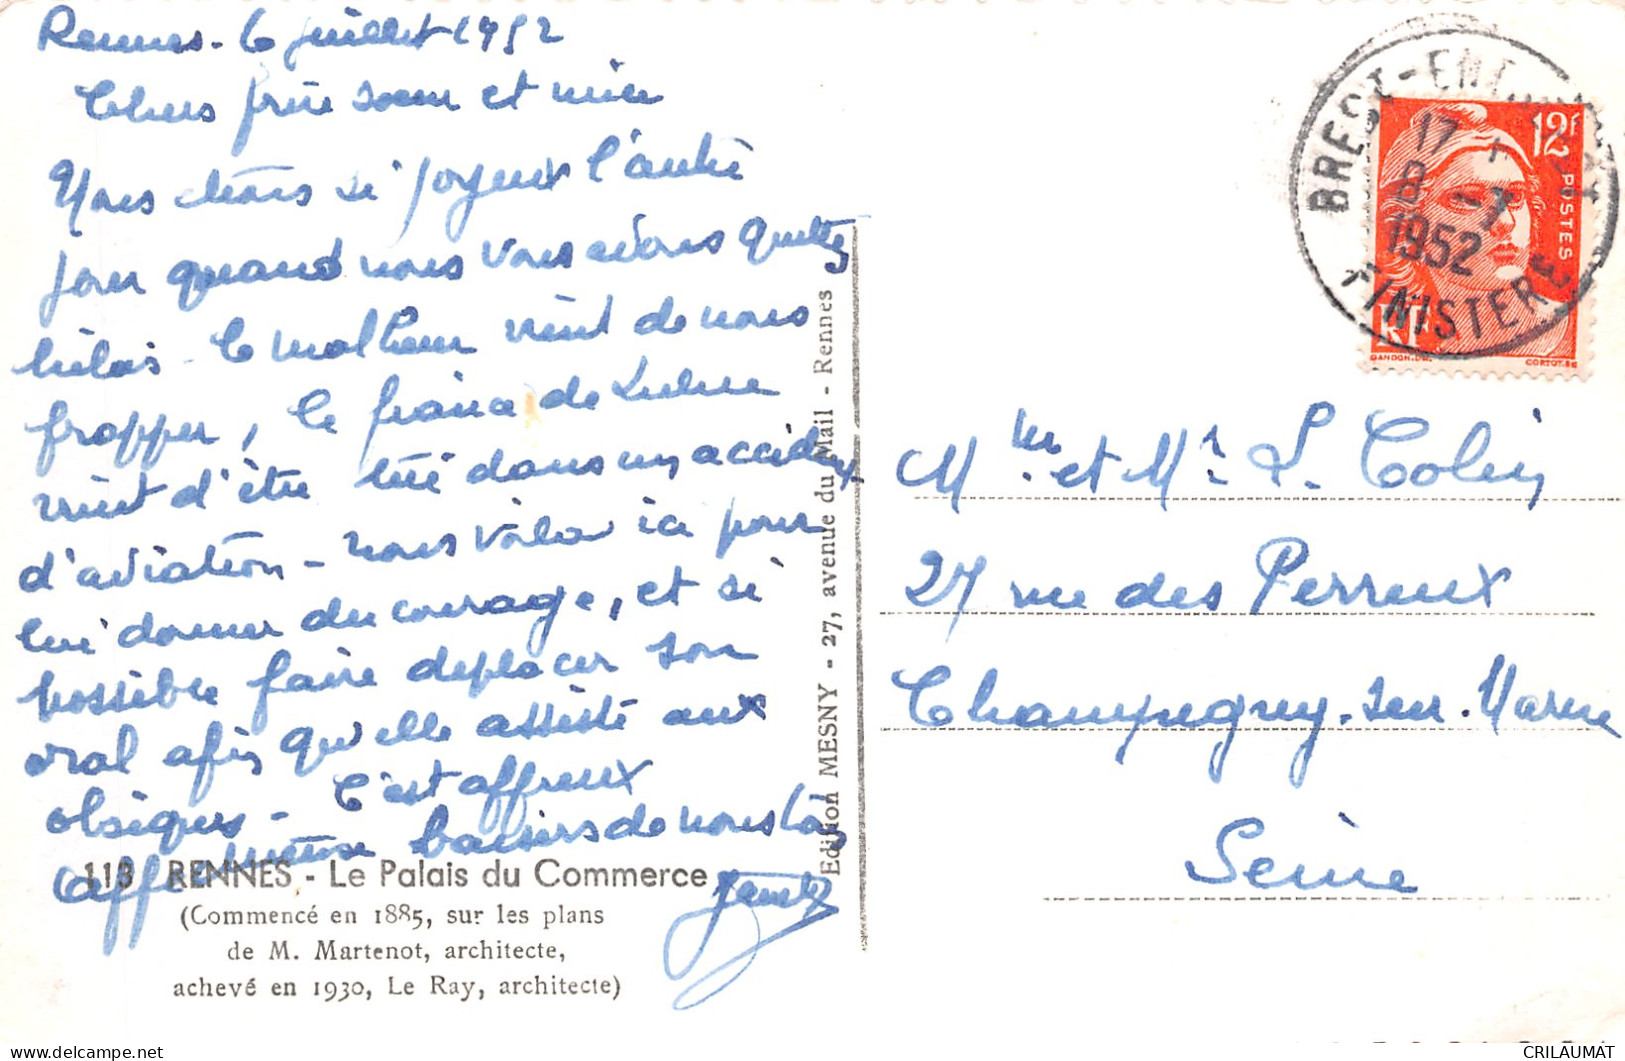 Rennes - 6 juillet 1952
Chers frère soeur et nièce
Nous étions si joyeux l'autre
jour quand nous vous avions quittés
hélas - le malheur vient de nous
frapper, le fiancé de
vient d'être tué dans un accident
d'aviation - nous voilà ici pour
lui donner du courage, et si
possible faire déplacer son
oral afin qu'elle assiste aux
obsèques - C'est affreux
affectueuse baisers de nous tous
113 RENNES - Le Palais du Commerce
(Commencé en 1885, sur les plans
de M. Martenot, architecte,
achevé en 1930, Le Ray, architecte)
Edition MESNY - 27, avenue du Mail - Rennes
BREST-ENTREPOT
17
8 -7
1952
FINISTERE
12f
POSTES
RF
GANDON.DEL
CORTOT.SC
Mme et Mr L. Colin
27 rue des Perreux
Champigny-sur-Marne
Seine
CRILAUMAT
delcampe.net